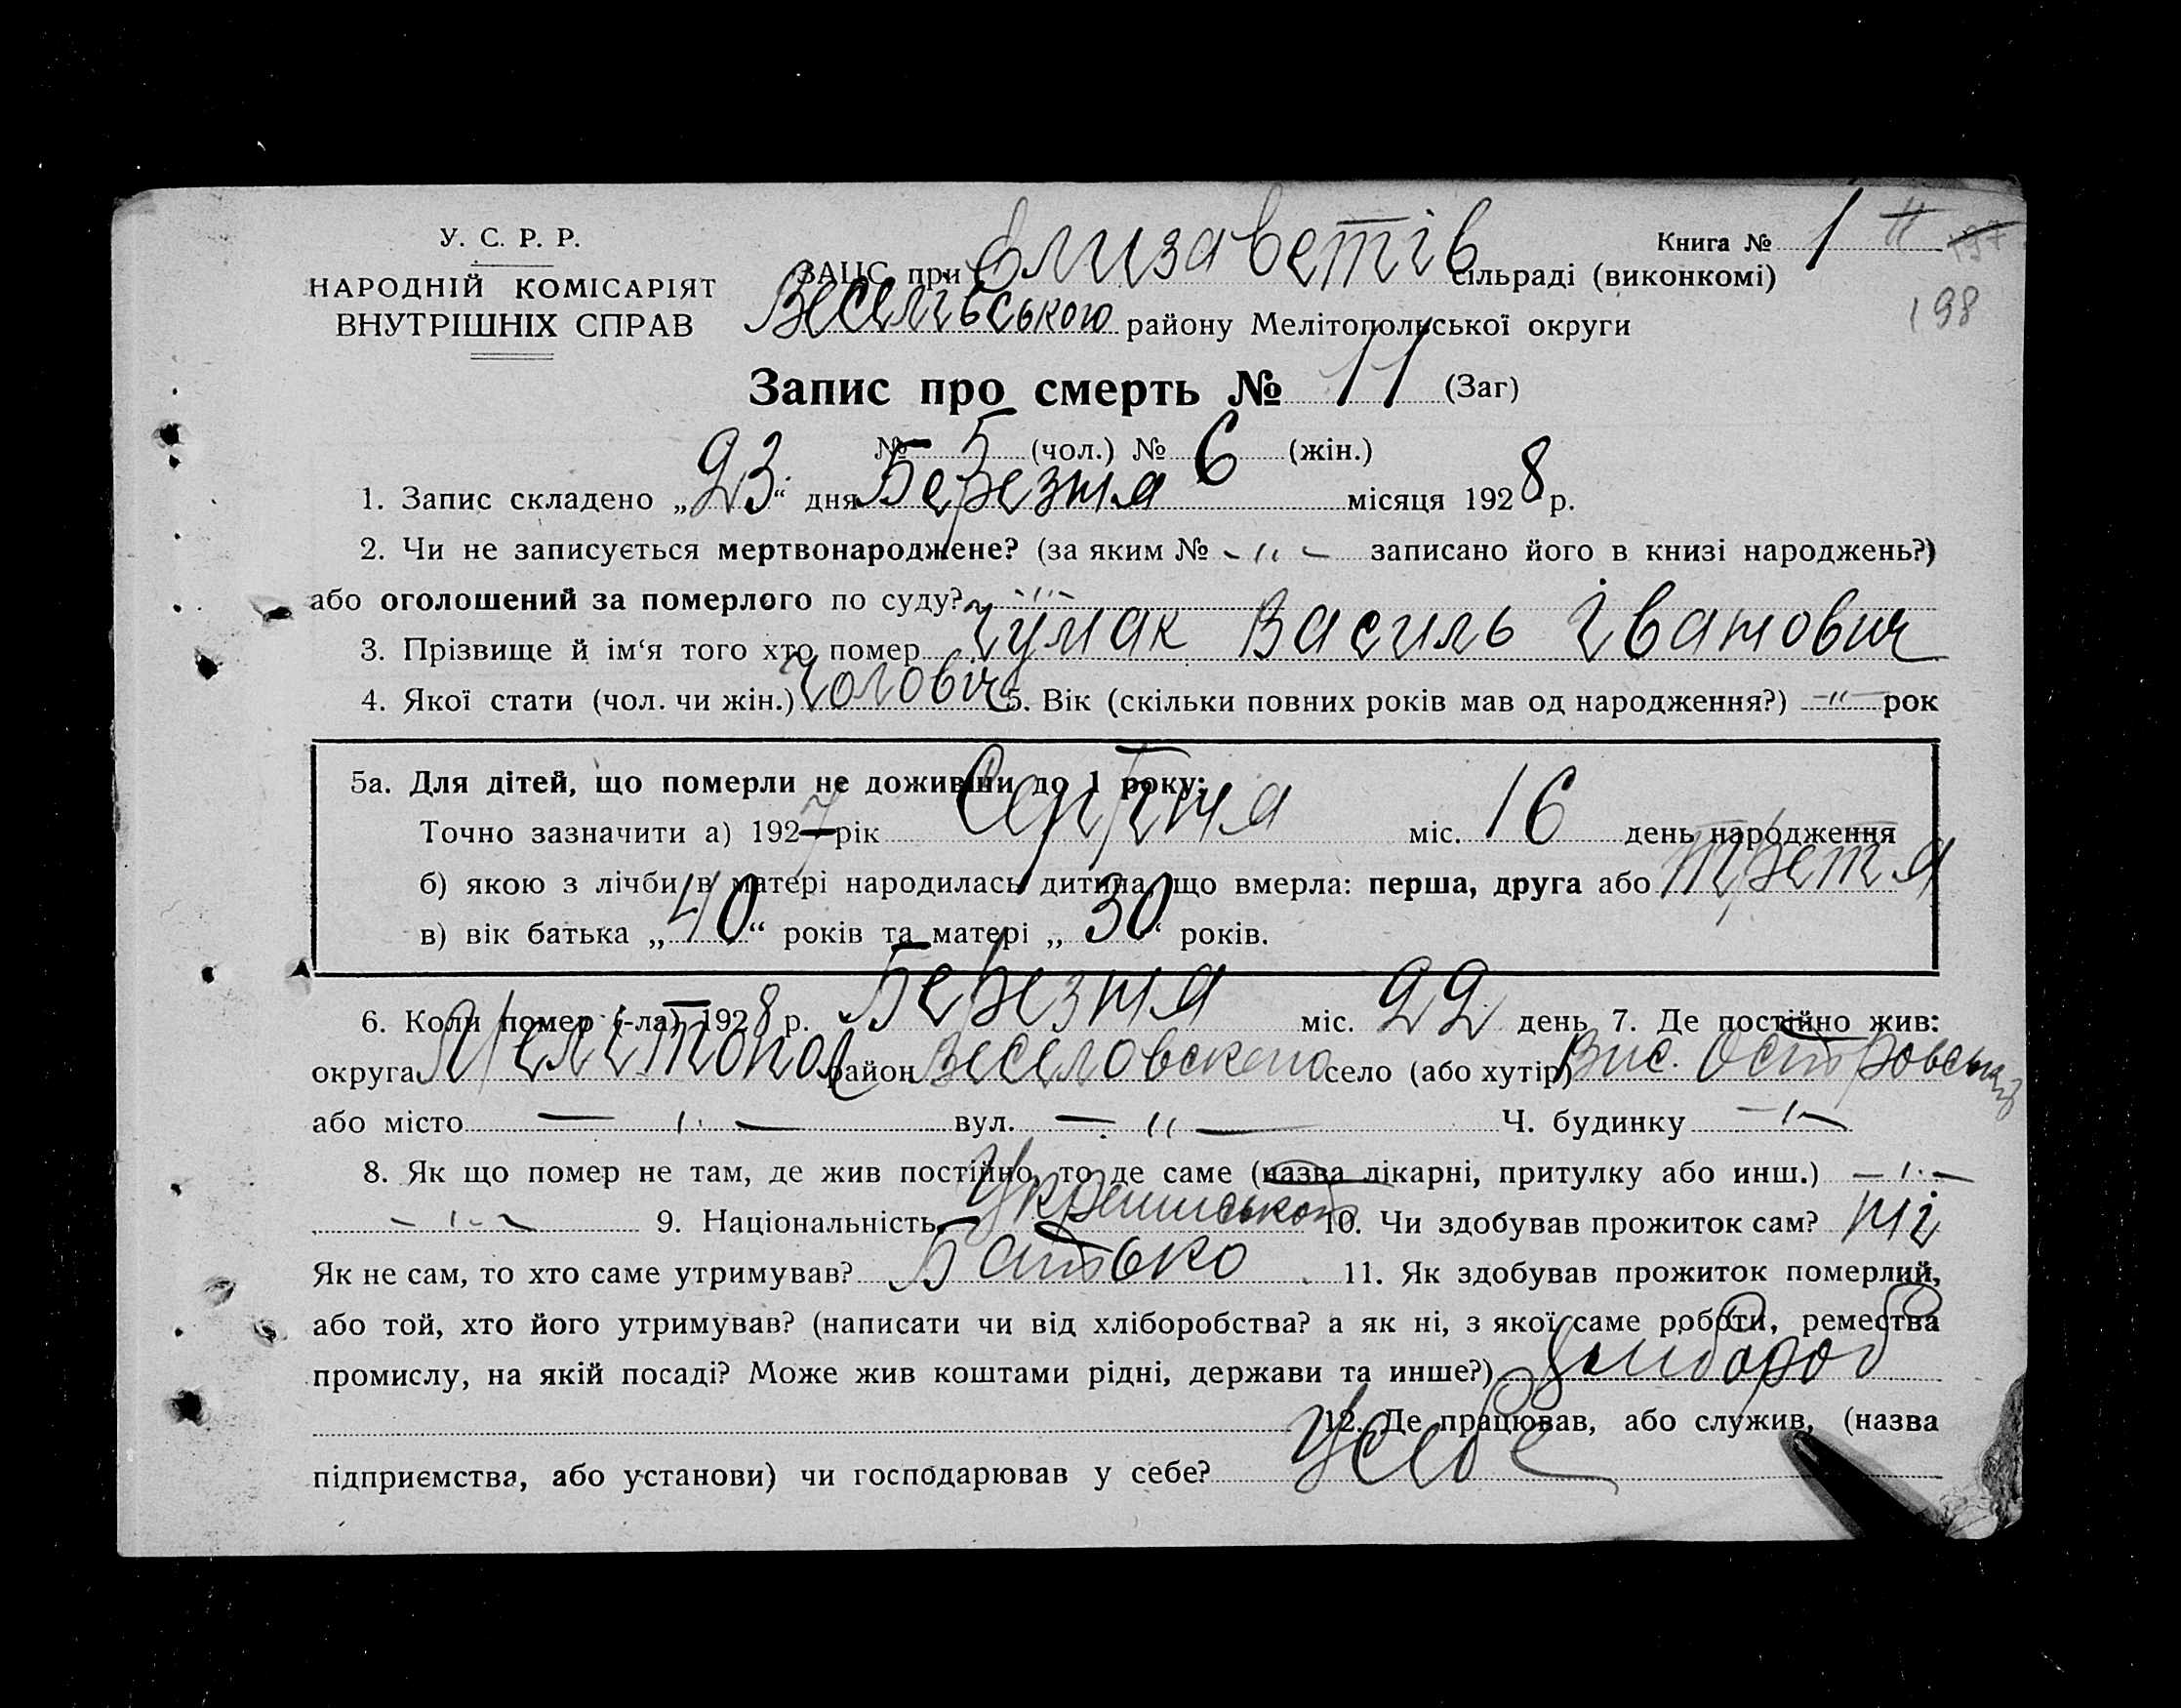 У. С. Р. Р.
НАРОДНІЙ КОМІСАРІЯТ
ВНУТРІШНІХ СПРАВ
Книга № 1
198
ЗАЦС при Єлизаветів сільраді (виконкомі)
Веселівського району Мелітопольської округи
Запис про смерть № 11 (Заг)
№ 5 (чол.) № 6 (жін.)
1. Запис складено „23“ дня Березня місяця 1928 р.
2. Чи не записується мертвонароджене? (за яким № - " - записано його в книзі народжень?)
або оголошений за померлого по суду? - " -
3. Прізвище й ім‘я того хто помер Чумак Василь Іванович
4. Якої стати (чол. чи жін.) Чоловіч 5. Вік (скільки повних років мав од народження?) - " - рок
5а. Для дітей, що померли не доживши до 1 року:
Точно зазначити а) 1927 рік Серпня міс. 16 день народження
б) якою з лічби в матері народилась дитина, що вмерла: перша, друга або третя
в) вік батька „40“ років та матері „30“ років.
6. Коли помер (-ла) 1928 р. Березня міс. 22 день 7. Де постійно жив:
округа Мелітопол район Веселовского село (або хутір) Вис. Островський
або місто - " - вул. - " - Ч. будинку - " -
8. Як що помер не там, де жив постійно, то де саме (назва лікарні, притулку або инш.) - " -
- " - 9. Національність 10. Чи здобував прожиток сам? ні
Як не сам, то хто саме утримував? Батько 11. Як здобував прожиток померлий,
або той, хто його утримував? (написати чи від хліборобства? а як ні, з якої саме роботи, ремества
промислу, на якій посаді? Може жив коштами рідні, держави та инше?) Хлібороб
12. Де працював, або служив, (назва
підприємства, або установи) чи господарював у себе? У себе